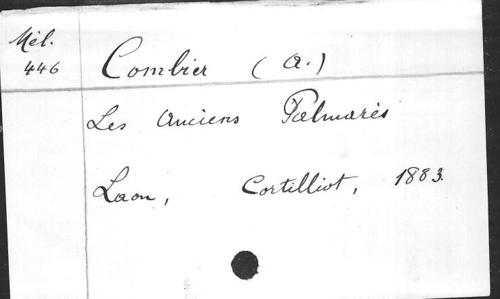 Mél.
446
Combier (A.)
Les Anciens Palmarès
Laon, Cortilliot, 1883.